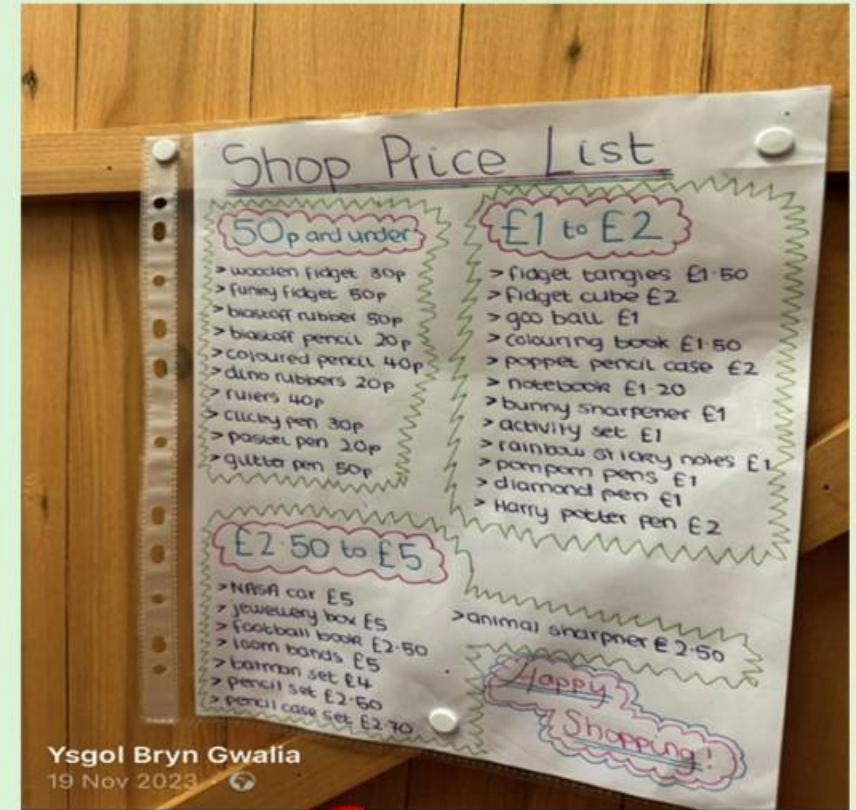 Shop Price List
50p and under
> wooden fidget 30p
> funky fidget 50p
> blastoff rubber 50p
> blastoff pencil 20p
> coloured pencil 40p
> dino rubbers 20p
> rulers 40p
> clicky pen 30p
> pastel pen 20p
> glitter pen 50p
£1 to £2
> fidget tangles £1.50
> fidget cube £2
> goo ball £1
> colouring book £1.50
> poppet pencil case £2
> notebook £1.20
> bunny sharpener £1
> activity set £1
> rainbow sticky notes £1
> pompom pens £1
> diamond pen £1
> Harry potter pen £2
£2.50 to £5
> NASA car £5
> jewellery box £5
> football book £2.50
> loom bands £5
> batman set £4
> pencil set £2.50
> pencil case set £2.70
> animal sharpner £2.50
Happy
Shopping!
Ysgol Bryn Gwalia
19 Nov 2023